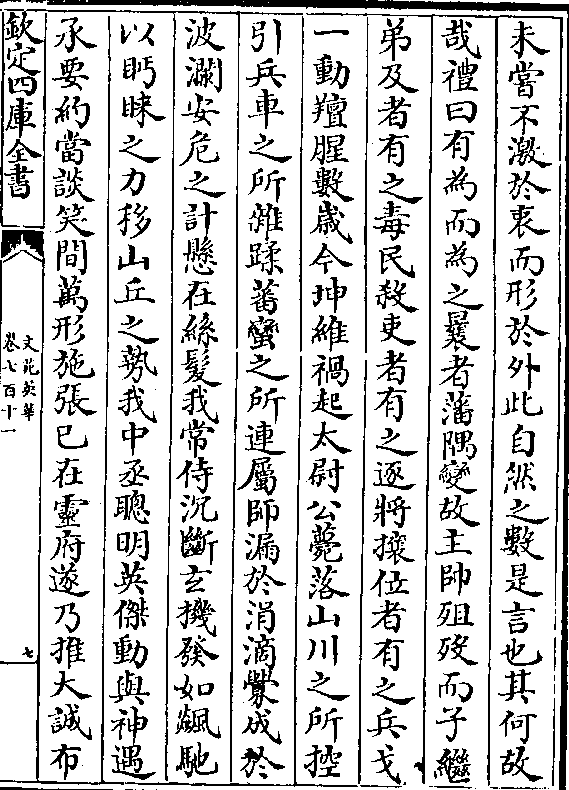 未嘗不激於衷而形於外此自然之數是言也其何故
哉禮曰有為而為之曩者藩隅變故主帥殂歿而子繼
弟及者有之毒民殺吏者有之逐將攘位者有之兵戈
一動羶腥數歲今坤維禍起太尉公薨落山川之所控
引兵車之所雜蹂蕃蠻之所連屬師漏於涓滴釁成於
波瀾安危之計懸在絲髮我常侍沉斷玄機發如飆馳
以眄睞之力移山丘之勢我中丞聰明英傑動與神遇
承要約當談笑間萬形施張已在靈府遂乃推大誠布
欽定四庫全書
文苑英華
卷七百十一
七